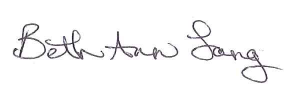 Beth Ann Lang